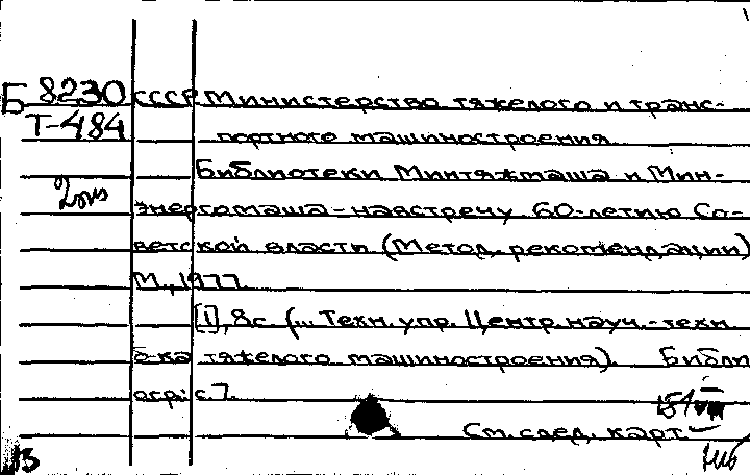 Б 8230 СССР Министерство тяжелого и транс-
Т-484 портного машиностроения
Библиотеки Минтяжмаша и Мин-
2
энергомаша - навстречу 60-летию Со-
ветской власти (Метод. рекомендации)
М., 1977.
[1], 8с. (... Техн. упр. Центр. науч.-техн
б-ка тяжелого машиностроения). Библи
огр: с. 7.
См. след. карт.